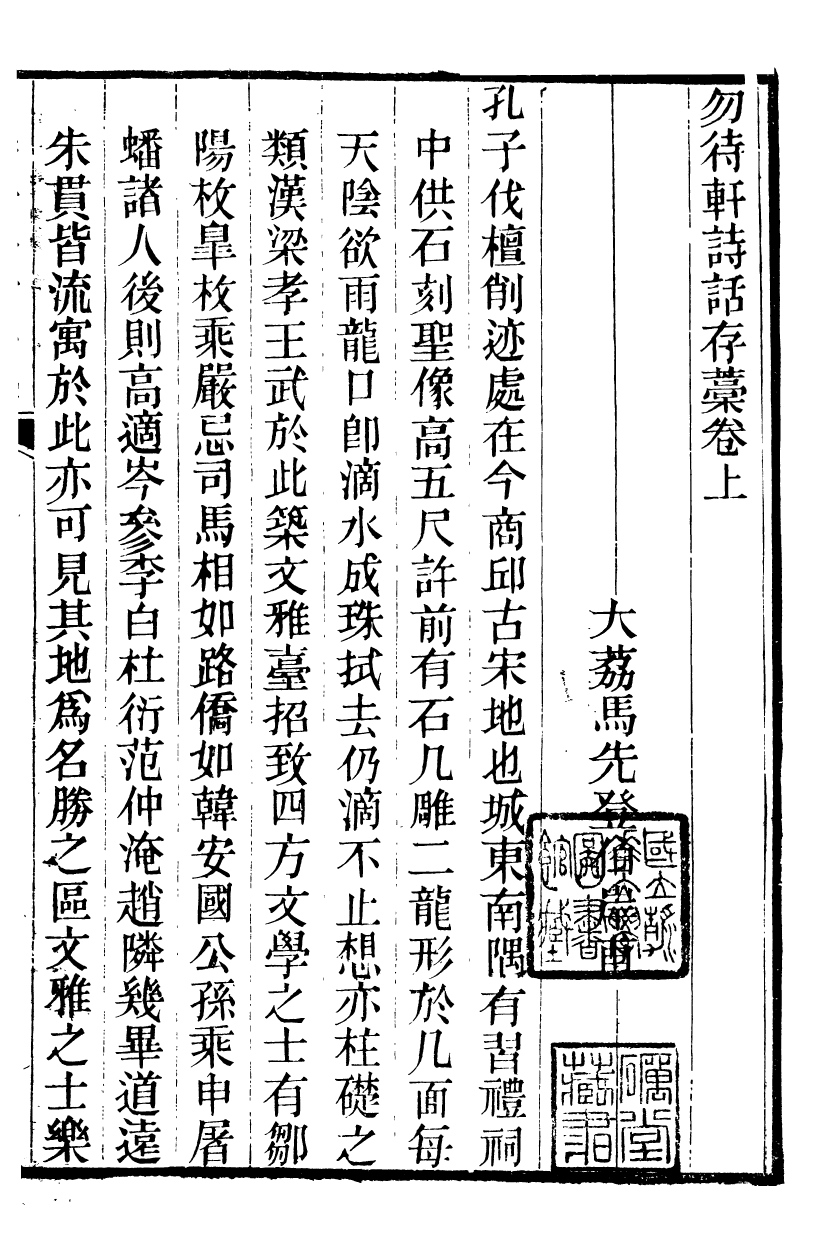 勿待軒詩話存藁卷上
大荔馬先登
孔子伐檀削迹處在今商邱古宋地也城東南隅有習禮祠
中供石刻聖像高五尺許前有石几雕二龍形於几面每
天陰欲雨龍口卽滴水成珠拭去仍滴不止想亦柱礎之
類漢梁孝王武於此築文雅臺招致四方文學之士有鄒
陽枚臯枚乘嚴忌司馬相如路僑如韓安國公孫乘申屠
蟠諸人後則高適岑參李白杜衍范仲淹趙隣幾畢道遠
朱貫皆流寓於此亦可見其地爲名勝之區文雅之士樂